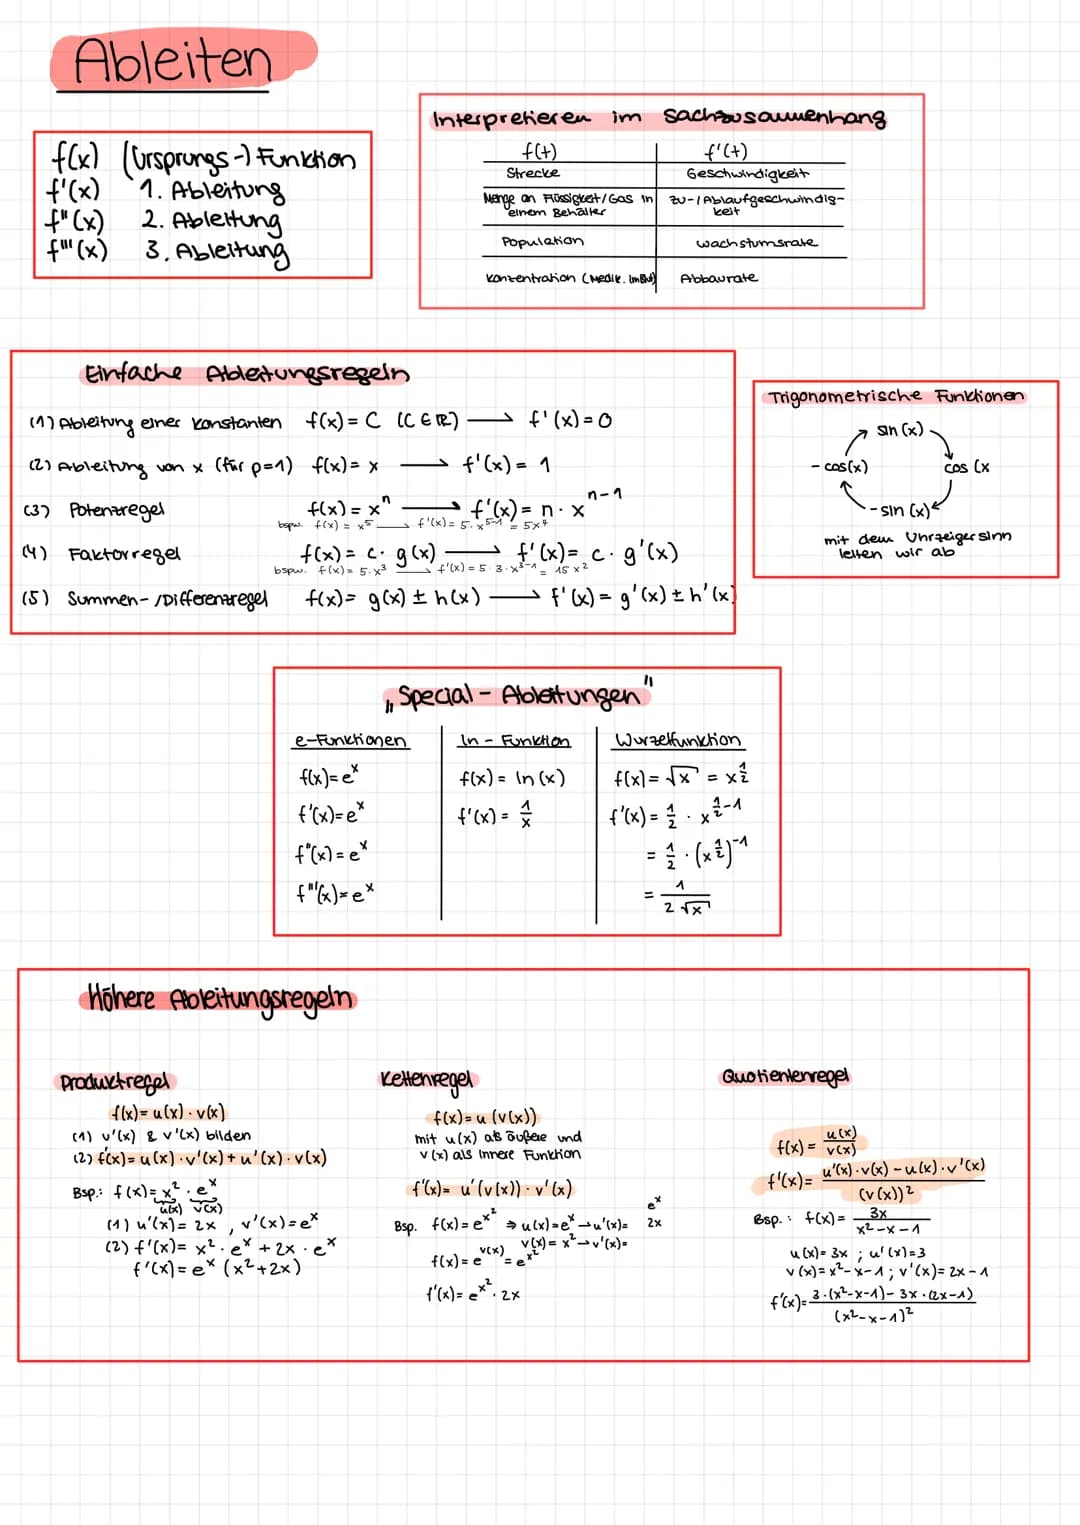 Ableiten
f(x) (Ursprungs-) Funktion
f'(x) 1. Ableitung
f"(x) 2. Ableitung
f'''(x) 3. Ableitung
Interpretieren im Sachzusammenhang
f(t) f'(t)
Strecke Geschwindigkeit
Menge an Flüssigkeit/Gas in einem Behälter Zu-/Ablaufgeschwindigkeit
Population Wachstumsrate
Konzentration (Medik. im Blut) Abbaurate
Einfache Ableitungsregeln
(1) Ableitung einer Konstanten f(x) = C (C ∈ ℝ) ⟶ f'(x) = 0
(2) Ableitung von x (für p=1) f(x) = x ⟶ f'(x) = 1
(3) Potenzregel f(x) = xⁿ ⟶ f'(x) = n · xⁿ⁻¹
bspw. f(x) = x⁵ ⟶ f'(x) = 5 · x⁵⁻¹ = 5x⁴
(4) Faktorregel f(x) = c · g(x) ⟶ f'(x) = c · g'(x)
bspw. f(x) = 5 · x³ ⟶ f'(x) = 5 · 3 · x³⁻¹ = 15x²
(5) Summen-/Differenzregel f(x) = g(x) ± h(x) ⟶ f'(x) = g'(x) ± h'(x)
Trigonometrische Funktionen
sin(x)
-cos(x) cos(x
-sin(x)
mit dem Uhrzeigersinn
leiten wir ab
„Special - Ableitungen"
e-Funktionen ln - Funktion Wurzelfunktion
f(x) = eˣ f(x) = ln(x) f(x) = √x = x^½
f'(x) = eˣ f'(x) = 1/x f'(x) = ½ · x^(½-1)
f"(x) = eˣ = ½ · (x^½)⁻¹
f'''(x) = eˣ = 1/(2√x)
Höhere Ableitungsregeln
Produktregel
f(x) = u(x) · v(x)
(1) u'(x) & v'(x) bilden
(2) f'(x) = u(x) · v'(x) + u'(x) · v(x)
Bsp.: f(x) = x² · eˣ
u(x) v(x)
(1) u'(x) = 2x , v'(x) = eˣ
(2) f'(x) = x² · eˣ + 2x · eˣ
f'(x) = eˣ (x²+2x)
Kettenregel
f(x) = u (v(x))
mit u(x) als äußere und
v(x) als innere Funktion
f'(x) = u'(v(x)) · v'(x)
Bsp. f(x) = e^(x²) ⇒ u(x) = eˣ → u'(x) = eˣ
v(x) = x² → v'(x) = 2x
f(x) = e^(v(x)) = e^(x²)
f'(x) = e^(x²) · 2x
Quotientenregel
f(x) = u(x)/v(x)
f'(x) = (u'(x) · v(x) - u(x) · v'(x))/(v(x))²
Bsp.: f(x) = 3x/(x²-x-1)
u(x) = 3x ; u'(x) = 3
v(x) = x²-x-1 ; v'(x) = 2x-1
f'(x) = (3·(x²-x-1) - 3x·(2x-1))/(x²-x-1)²